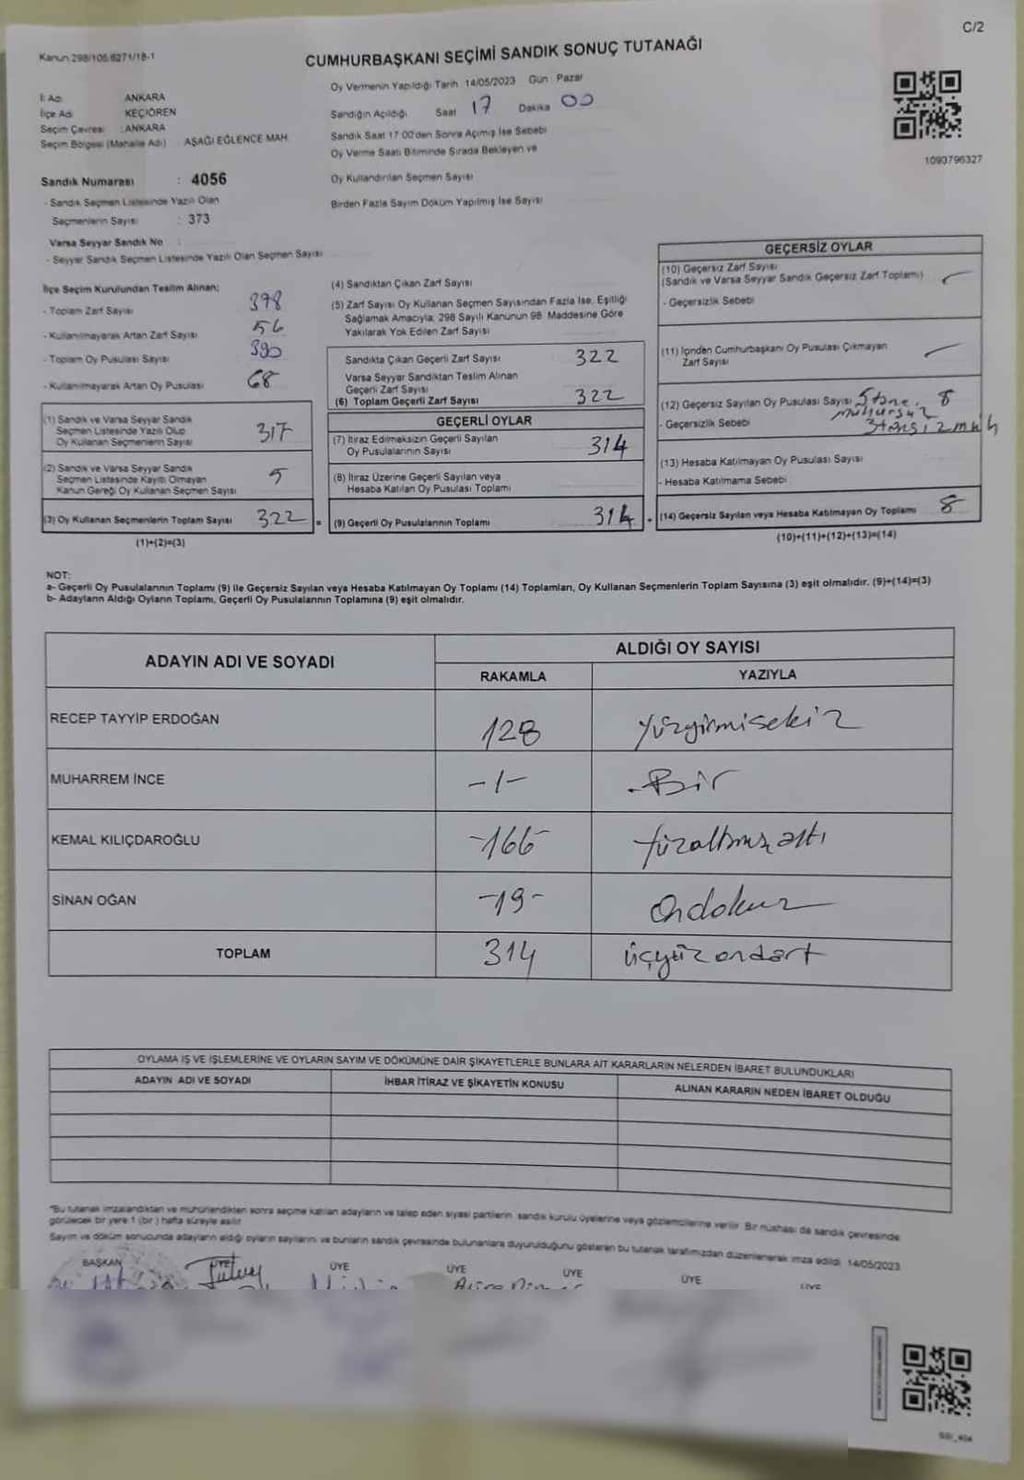 C/2
Kanun 298/106,6271/18-1
CUMHURBAŞKANI SEÇİMİ SANDIK SONUÇ TUTANAĞI
Oy Vermenin Yapıldığı Tarih 14/05/2023 Gün Pazar
İl Adı ANKARA
İlçe Adı KEÇİÖREN
Seçim Çevresi : ANKARA
Seçim Bölgesi (Mahalle Adı) : AŞAĞI EĞLENCE MAH.
Sandığın Açıldığı Saat 17 Dakika 00
Sandık Saat 17:00'den Sonra Açılmış İse Sebebi
Oy Verme Saati Bitiminde Sırada Bekleyen ve
Oy Kullandırılan Seçmen Sayısı
Birden Fazla Sayım Döküm Yapılmış İse Sayısı
1093796327
Sandık Numarası : 4056
- Sandık Seçmen Listesinde Yazılı Olan
Seçmenlerin Sayısı : 373
Varsa Seyyar Sandık No :
- Seyyar Sandık Seçmen Listesinde Yazılı Olan Seçmen Sayısı
İlçe Seçim Kurulundan Teslim Alınan;
- Toplam Zarf Sayısı 378
- Kullanılmayarak Artan Zarf Sayısı 56
- Toplam Oy Pusulası Sayısı 390
- Kullanılmayarak Artan Oy Pusulası 68
(1) Sandık ve Varsa Seyyar Sandık
Seçmen Listesinde Yazılı Olup
Oy Kullanan Seçmenlerin Sayısı 317
(2) Sandık ve Varsa Seyyar Sandık
Seçmen Listesinde Kayıtlı Olmayan
Kanun Gereği Oy Kullanan Seçmen Sayısı 5
(3) Oy Kullanan Seçmenlerin Toplam Sayısı 322
(1)+(2)=(3)
(4) Sandıktan Çıkan Zarf Sayısı
(5) Zarf Sayısı Oy Kullanan Seçmen Sayısından Fazla İse, Eşitliği
Sağlamak Amacıyla; 298 Sayılı Kanunun 98. Maddesine Göre
Yakılarak Yok Edilen Zarf Sayısı
Sandıkta Çıkan Geçerli Zarf Sayısı 322
Varsa Seyyar Sandıktan Teslim Alınan
Geçerli Zarf Sayısı
(6) Toplam Geçerli Zarf Sayısı 322
GEÇERLİ OYLAR
(7) İtiraz Edilmeksizin Geçerli Sayılan
Oy Pusulalarının Sayısı 314
(8) İtiraz Üzerine Geçerli Sayılan veya
Hesaba Katılan Oy Pusulası Toplamı
(9) Geçerli Oy Pusulalarının Toplamı 314
GEÇERSİZ OYLAR
(10) Geçersiz Zarf Sayısı
(Sandık ve Varsa Seyyar Sandık Geçersiz Zarf Toplamı)
- Geçersizlik Sebebi
(11) İçinden Cumhurbaşkanı Oy Pusulası Çıkmayan
Zarf Sayısı
(12) Geçersiz Sayılan Oy Pusulası Sayısı 5 tane 8
mühürsüz
- Geçersizlik Sebebi
(13) Hesaba Katılmayan Oy Pusulası Sayısı
- Hesaba Katılmama Sebebi
(14) Geçersiz Sayılan veya Hesaba Katılmayan Oy Toplamı 8
(10)+(11)+(12)+(13)=(14)
NOT:
a- Geçerli Oy Pusulalarının Toplamı (9) ile Geçersiz Sayılan veya Hesaba Katılmayan Oy Toplamı (14) Toplamları, Oy Kullanan Seçmenlerin Toplam Sayısına (3) eşit olmalıdır. (9)+(14)=(3)
b- Adayların Aldığı Oyların Toplamı, Geçerli Oy Pusulalarının Toplamına (9) eşit olmalıdır.
ADAYIN ADI VE SOYADI
ALDIĞI OY SAYISI
RAKAMLA YAZIYLA
RECEP TAYYİP ERDOĞAN 128 yüzyirmisekiz
MUHARREM İNCE -1- -Bir
KEMAL KILIÇDAROĞLU -166- yüzaltmışaltı
SİNAN OĞAN -19- Ondokuz
TOPLAM 314 üçyüzondört
OYLAMA İŞ VE İŞLEMLERİNE VE OYLARIN SAYIM VE DÖKÜMÜNE DAİR ŞİKAYETLERLE BUNLARA AİT KARARLARIN NELERDEN İBARET BULUNDUKLARI
ADAYIN ADI VE SOYADI İHBAR İTİRAZ VE ŞİKAYETİN KONUSU ALINAN KARARIN NEDEN İBARET OLDUĞU
"Bu tutanak imzalandıktan ve mühürlendikten sonra seçime katılan adayların ve talep eden siyasi partilerin sandık kurulu üyelerine veya gözlemcilerine verilir. Bir nüshası da sandık çevresinde
görülecek bir yere 1 (bir) hafta süreyle asılır
Sayım ve döküm sonucunda adayların aldığı oyların sayılarını ve bunların sandık çevresinde bulunanlara duyurulduğunu gösteren bu tutanak tarafımızdan düzenlenerek imza edildi. 14/05/2023
BAŞKAN ÜYE ÜYE ÜYE ÜYE ÜYE